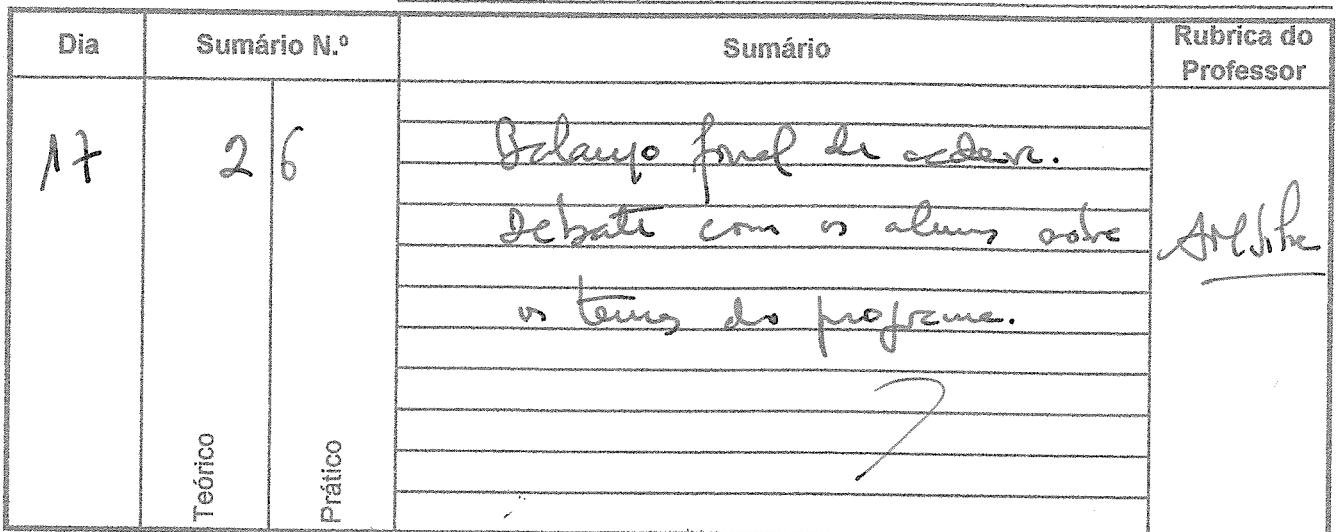 Dia Sumário N.º Sumário Rubrica do Professor
17 26 Balanço final da cadeira.
Debate com os alunos sobre
os temas do programa.
Teórico Prático